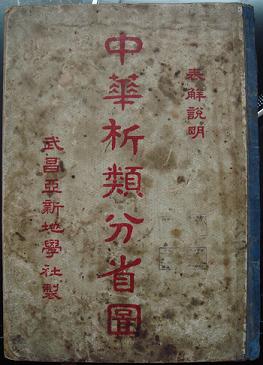 表解說明
中華析類分省圖
武昌亞新地學社製